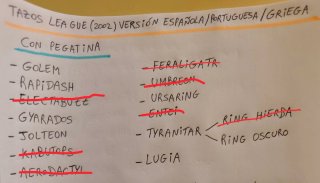 TAZOS LEAGUE (2002) VERSIÓN ESPAÑOLA/PORTUGUESA/GRIEGA
CON PEGATINA
- GOLEM
- RAPIDASH
- ELECTABUZZ
- GYARADOS
- JOLTEON
- KABUTOPS
- AERODACTYL
- FERALIGATR
- UMBREON
- URSARING
- ENTEI
- TYRANITAR
RING HIERBA
RING OSCURO
- LUGIA